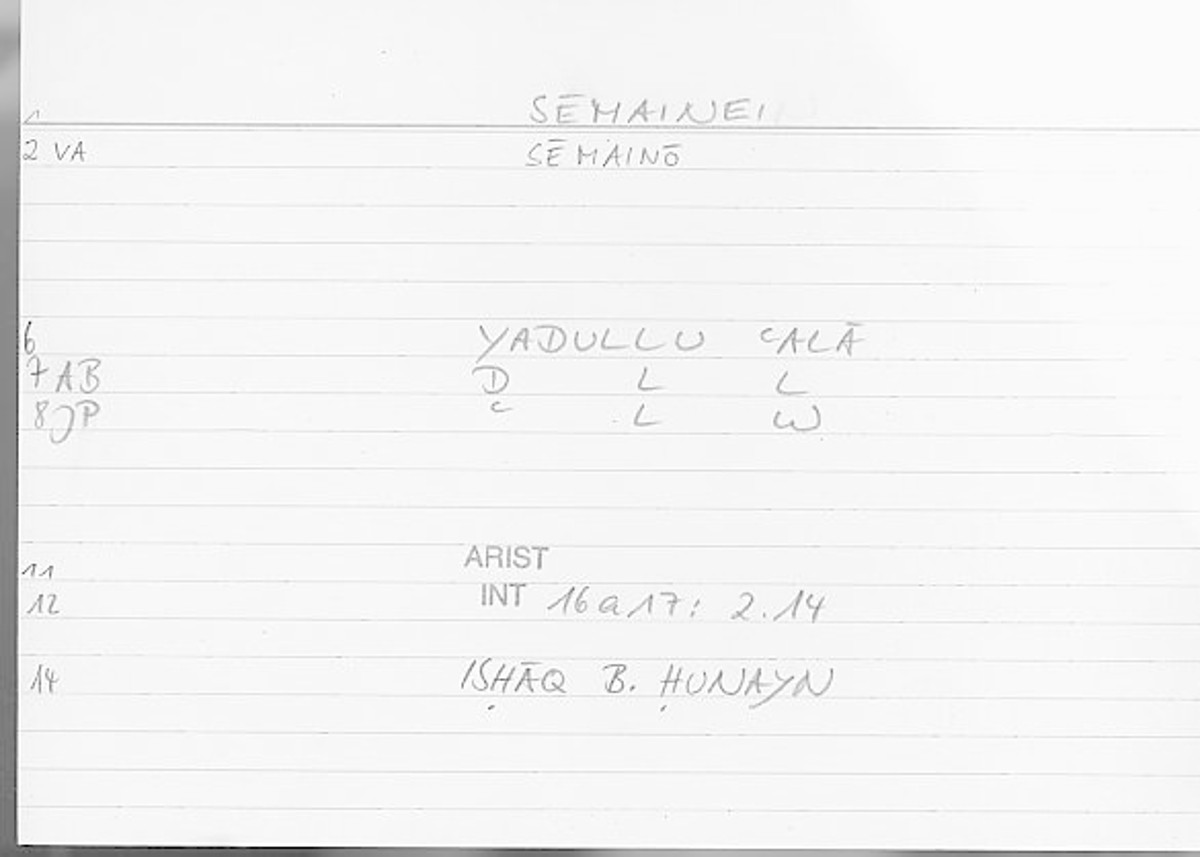 1 SĒMAINEI
2 VA SĒMAINŌ
6 YADULLU ʿALĀ
7 AB D L L
8 JP ʿ L W
11 ARIST
12 INT 16a17: 2.14
14 ISḤĀQ B. ḤUNAYN